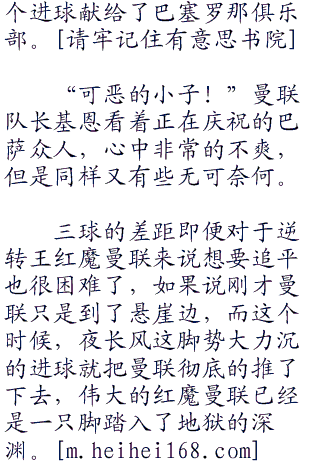 个进球献给了巴塞罗那俱乐
部。[请牢记住有意思书院]
“可恶的小子！”曼联
队长基恩看着正在庆祝的巴
萨众人，心中非常的不爽，
但是同样又有些无可奈何。
三球的差距即便对于逆
转王红魔曼联来说想要追平
也很困难了，如果说刚才曼
联只是到了悬崖边，而这个
时候，夜长风这脚势大力沉
的进球就把曼联彻底的推了
下去，伟大的红魔曼联已经
是一只脚踏入了地狱的深
渊。[m.heihei168.com]